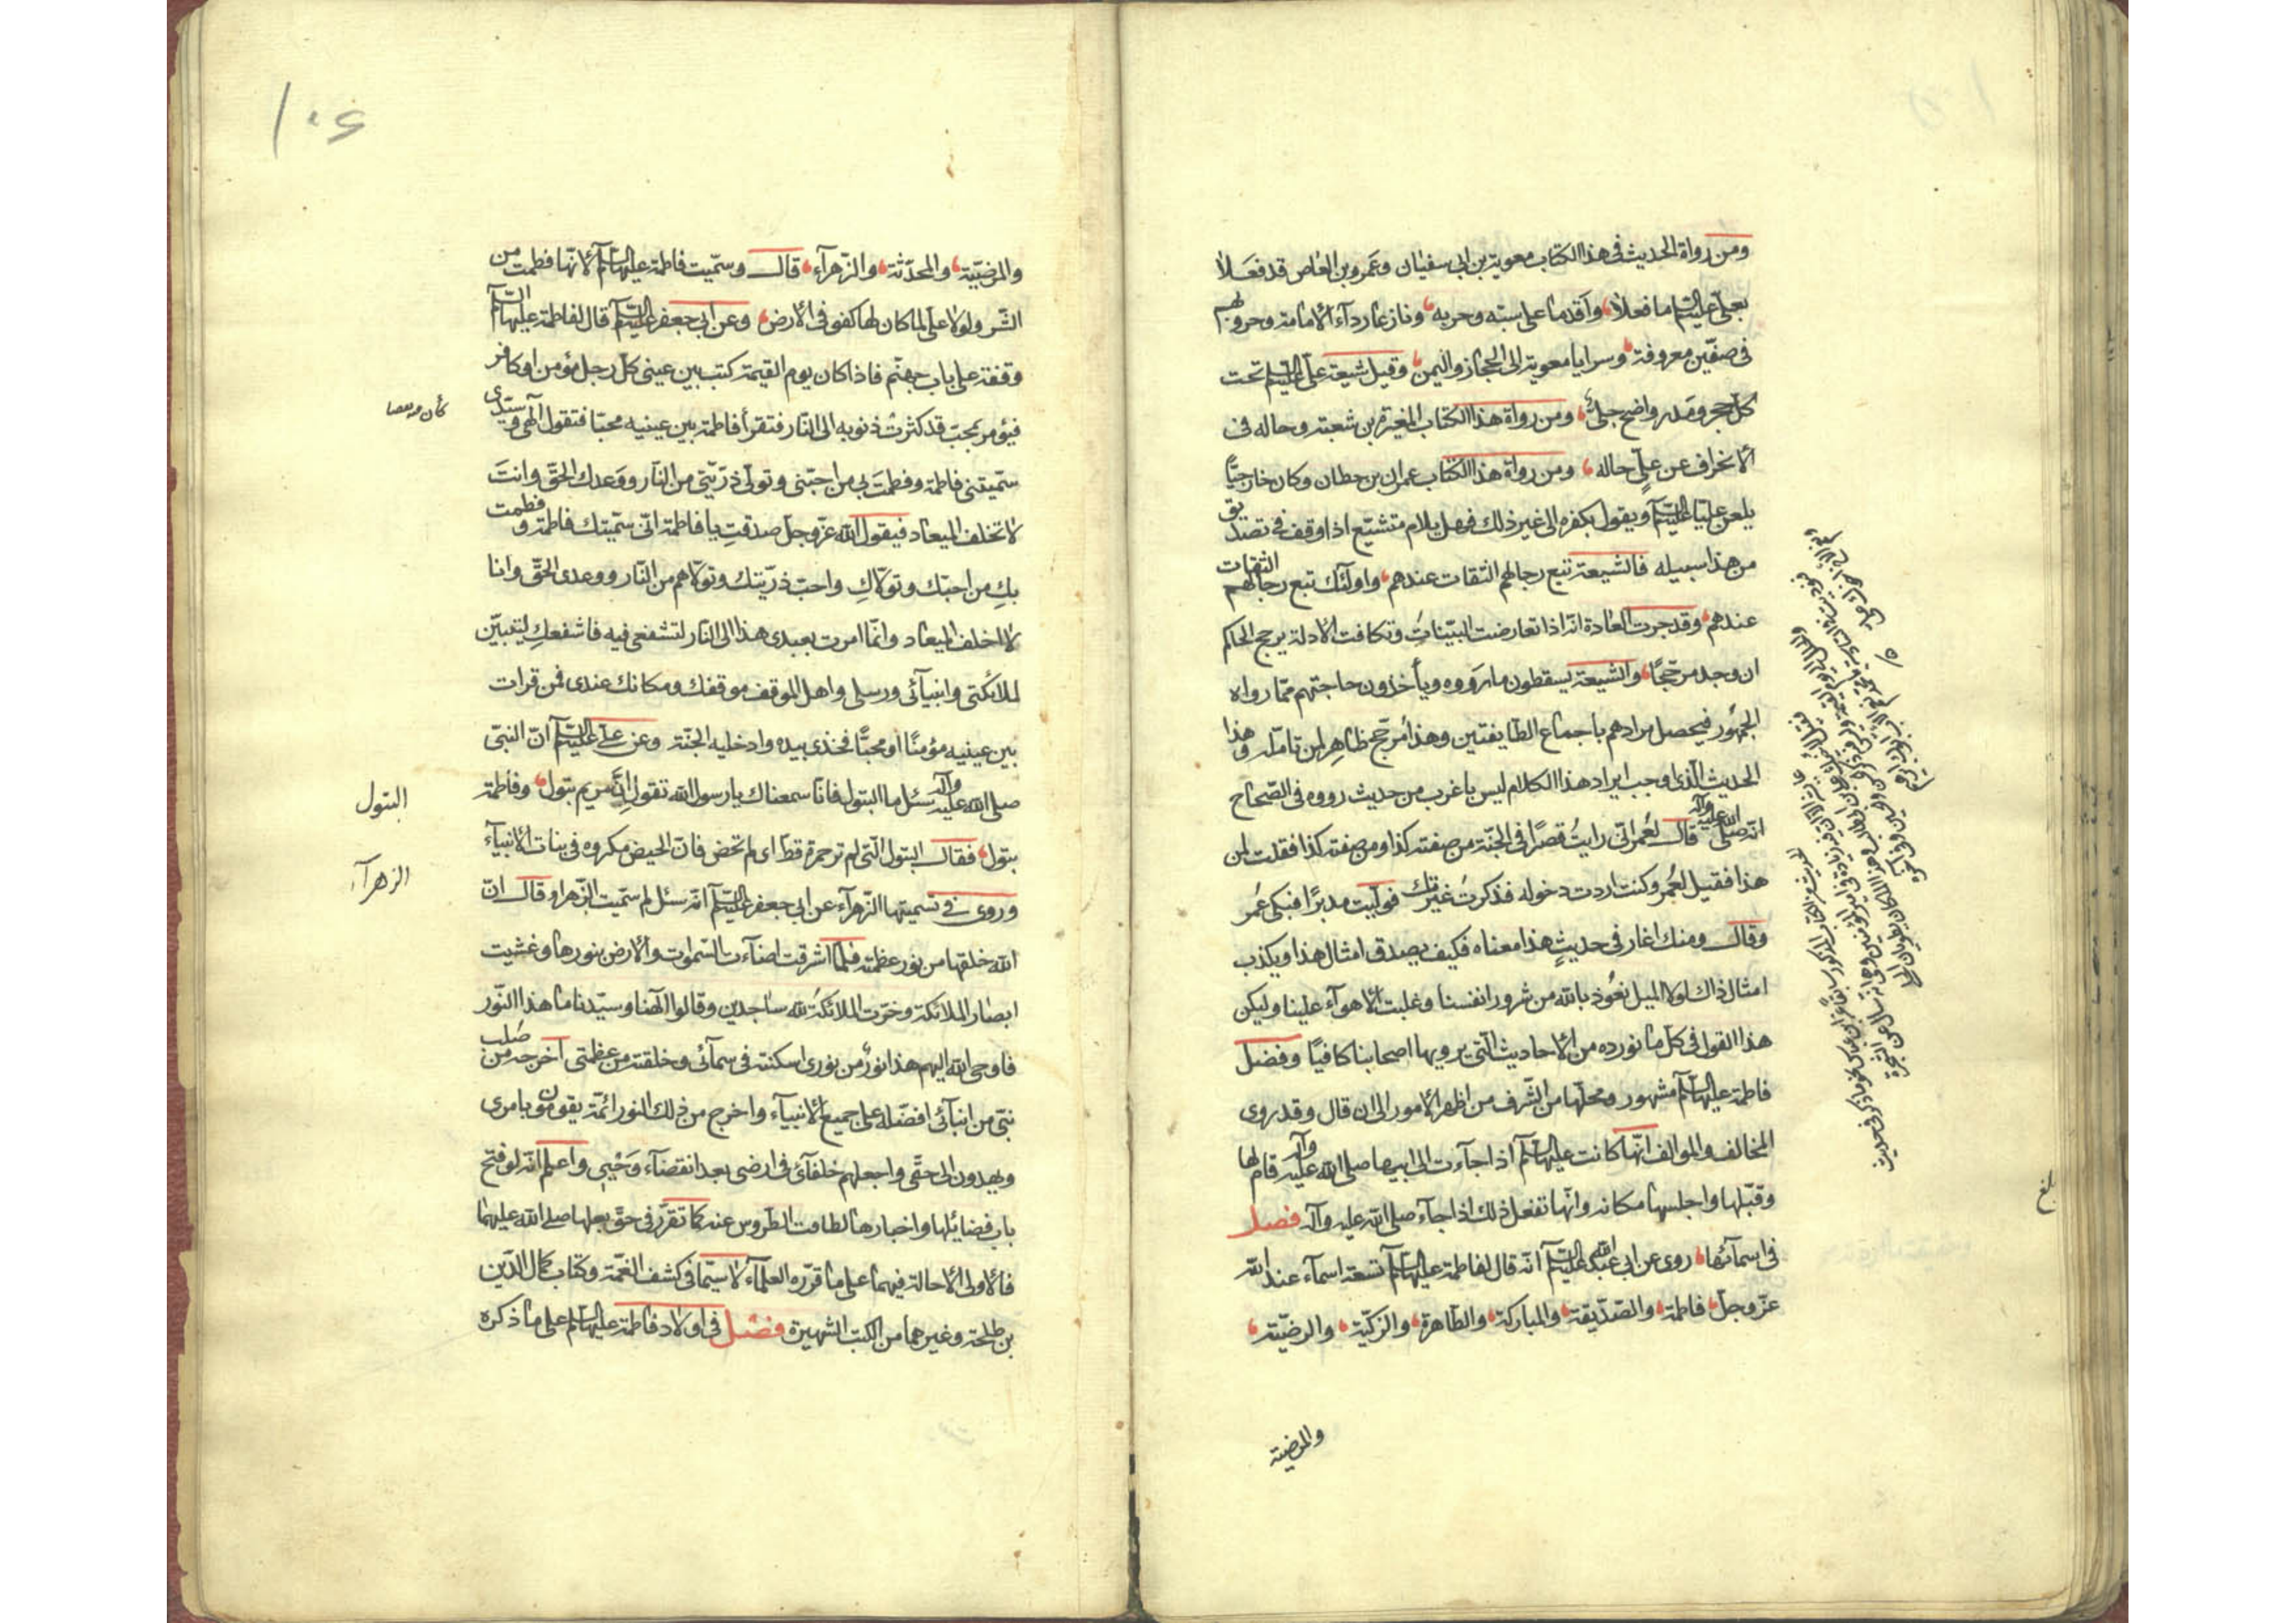 ومن رواة الحديث في هذا الكتاب معوية بن ابي سفيان وعمرو بن العاص قد فعلا
بعلي عليه السلام ما فعلا واقدما على سبه وحربه ونازعا رداء الامامة وحروبهم
في صفين معروفة وسرايا معوية الى الحجاز واليمن وقيل شيعة علي عليه السلام تحت
كل حجر ومدر واضح جلي ومن رواة هذا الكتاب المغيرة بن شعبة وحاله في
الانحراف عن علي حاله ومن رواة هذا الكتاب عمران بن حطان وكان خارجيًا
يلعن عليا عليه السلام ويقول بكفره الى غير ذلك فهل يلام متشيع اذا وقف في تصديق
من هذا سبيله فالشيعة تتبع رجالهم الثقات عندهم واولئك تتبع رجالهم الثقات
عندهم وقد جرت العادة انه اذا تعارضت البينات وتكافت الادلة يرجح الحاكم
ان وجد مرجحًا والشيعة يسقطون ما رووه ويأخذون حاجتهم مما رواه
الجمهور فيحصل مرادهم باجماع الطايفتين وهذا مرجح ظاهر لمن تامله وهذا
الحديث الذي اوجب ايراد هذا الكلام ليس باغرب من حديث رووه في الصحاح
انه صلى الله عليه وآله قال لعمر اني رايت قصرًا في الجنة من صفته كذا ومن صفته كذا فقلت لمن
هذا فقيل لعمر وكنت اردت دخوله فذكرت غيرتك فوليت مدبرًا فبكى عمر
وقال ومنك اغار في حديث هذا معناه فكيف يصدق امثال هذا ويكذب
امثال ذاك لولا الميل نعوذ بالله من شرور انفسنا وغلبت الاهوآء علينا وليكن
هذا القول في كل ما نورده من الاحاديث التي يرويها اصحابنا كافيًا وفضل
فاطمة عليها السلام مشهور ومحلها من الشرف من اظهر الامور الى ان قال وقد روى
المخالف والموالف انها كانت عليها السلام اذا جاءت الى ابيها صلى الله عليه وآله قام لها
وقبلها واجلسها مكانه وانها تفعل ذلك اذا جاء صلى الله عليه وآله فصل
في اسمائها روى عن ابي عبد الله عليه السلام انه قال لفاطمة عليها السلام تسعة اسمآء عند الله
عز وجل فاطمة والصديقة والمباركة والطاهرة والزكية والرضية
والمرضية
بلغ
۱۰۶
والمرضية والمحدثة والزهرآء قال وسميت فاطمة عليها السلام لانها فطمت من
الشر ولولا علي لما كان لها كفو في الارض وعن ابي جعفر عليه السلام قال لفاطمة عليها السلام
وقفة على باب جهنم فاذا كان يوم القيمة كتب بين عيني كل رجل مؤمن او كافر
فيؤمر بمحب قد كثرت ذنوبه الى النار فتقرأ فاطمة بين عينيه محبا فتقول الهي وسيدي
سميتني فاطمة وفطمت بي من احبني وتولى ذريتي من النار ووعدك الحق وانت
لا تخلف الميعاد فيقول الله عز وجل صدقت يا فاطمة اني سميتك فاطمة وفطمت
بك من احبك وتولاك واحب ذريتك وتولاهم من النار ووعدى الحق وانا
لا اخلف الميعاد وانما امرت بعبدى هذا الى النار لتشفعي فيه فاشفعك ليتبين
لملائكتي وانبيائي ورسلي واهل الموقف موقفك ومكانك عندى فمن قرات
بين عينيه مؤمنًا او محبًا فخذي بيده وادخليه الجنة وعن علي عليه السلام ان النبي
صلى الله عليه وآله سئل ما البتول فانا سمعناك يا رسول الله تقول ان مريم بتول وفاطمة
بتول فقال البتول التي لم تر حمرة قط اى لم تحض فان الحيض مكروه في بنات الانبيآء
وروى في تسميتها الزهرآء عن ابي جعفر عليه السلام انه سئل لم سميت الزهرا وقال ان
الله خلقها من نور عظمته فلما اشرقت اضاءت السموات والارض بنورها وغشيت
ابصار الملائكة وخرت الملائكة لله ساجدين وقالوا الهنا وسيدنا ما هذا النور
فاوحى الله اليهم هذا نور من نورى اسكنته في سمائي وخلقته من عظمتي اخرجه من صلب
نبي من انبيائي افضله على جميع الانبيآء واخرج من ذلك النور ائمة يقومون بامرى
ويهدون الى حقي واجعلهم خلفائي في ارضى بعد انقضاء وحيي واعلم انه لو فتح
باب فضايلها واخبارها لطافت الطروس عنه كما تقرر في حق بعلها صلى الله عليهما
فالاولى الاحالة فيهما على ما قرره العلمآء لا سيما في كشف الغمة وكتاب كمال الدين
بن طلحة وغيرهما من الكتب الشهيرة فصل في اولاد فاطمة عليها السلام على ما ذكره
البتول
الزهرآء